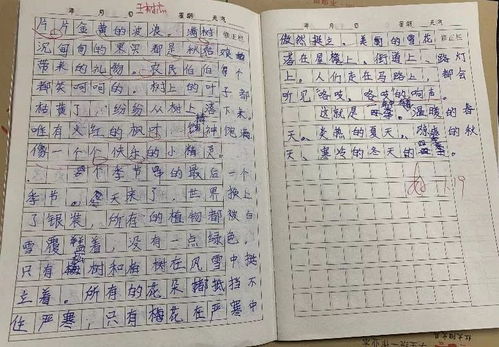 年 月 日 星期 天气
片片金黄的波浪。满树
沉甸甸的果实都是秋姑娘
带来的礼物。农民伯伯个个
都笑呵呵的。树上的叶子
枯黄了，纷纷从树上落下来。
唯有火红的枫树精神饱满，
像一个个快乐的小精灵。
冬季的最后一个
季节。冬天来了，世界换上
了银装，所有的植物都被白
雪覆盖着，没有一点绿色，
只有松树和梅树在风雪中挺
立着。所有的花朵都抵挡不
住严寒，只有梅花在严寒中
年 月 日 星期 天气
傲然挺立。美丽的雪花
落在屋檐上、街道上、路灯
上。人们走在马路上，都会
听见“咯吱，咯吱”的响声。
这就是四季。温暖的春
天、炎热的夏天、凉爽的秋
天、寒冷的冬天的